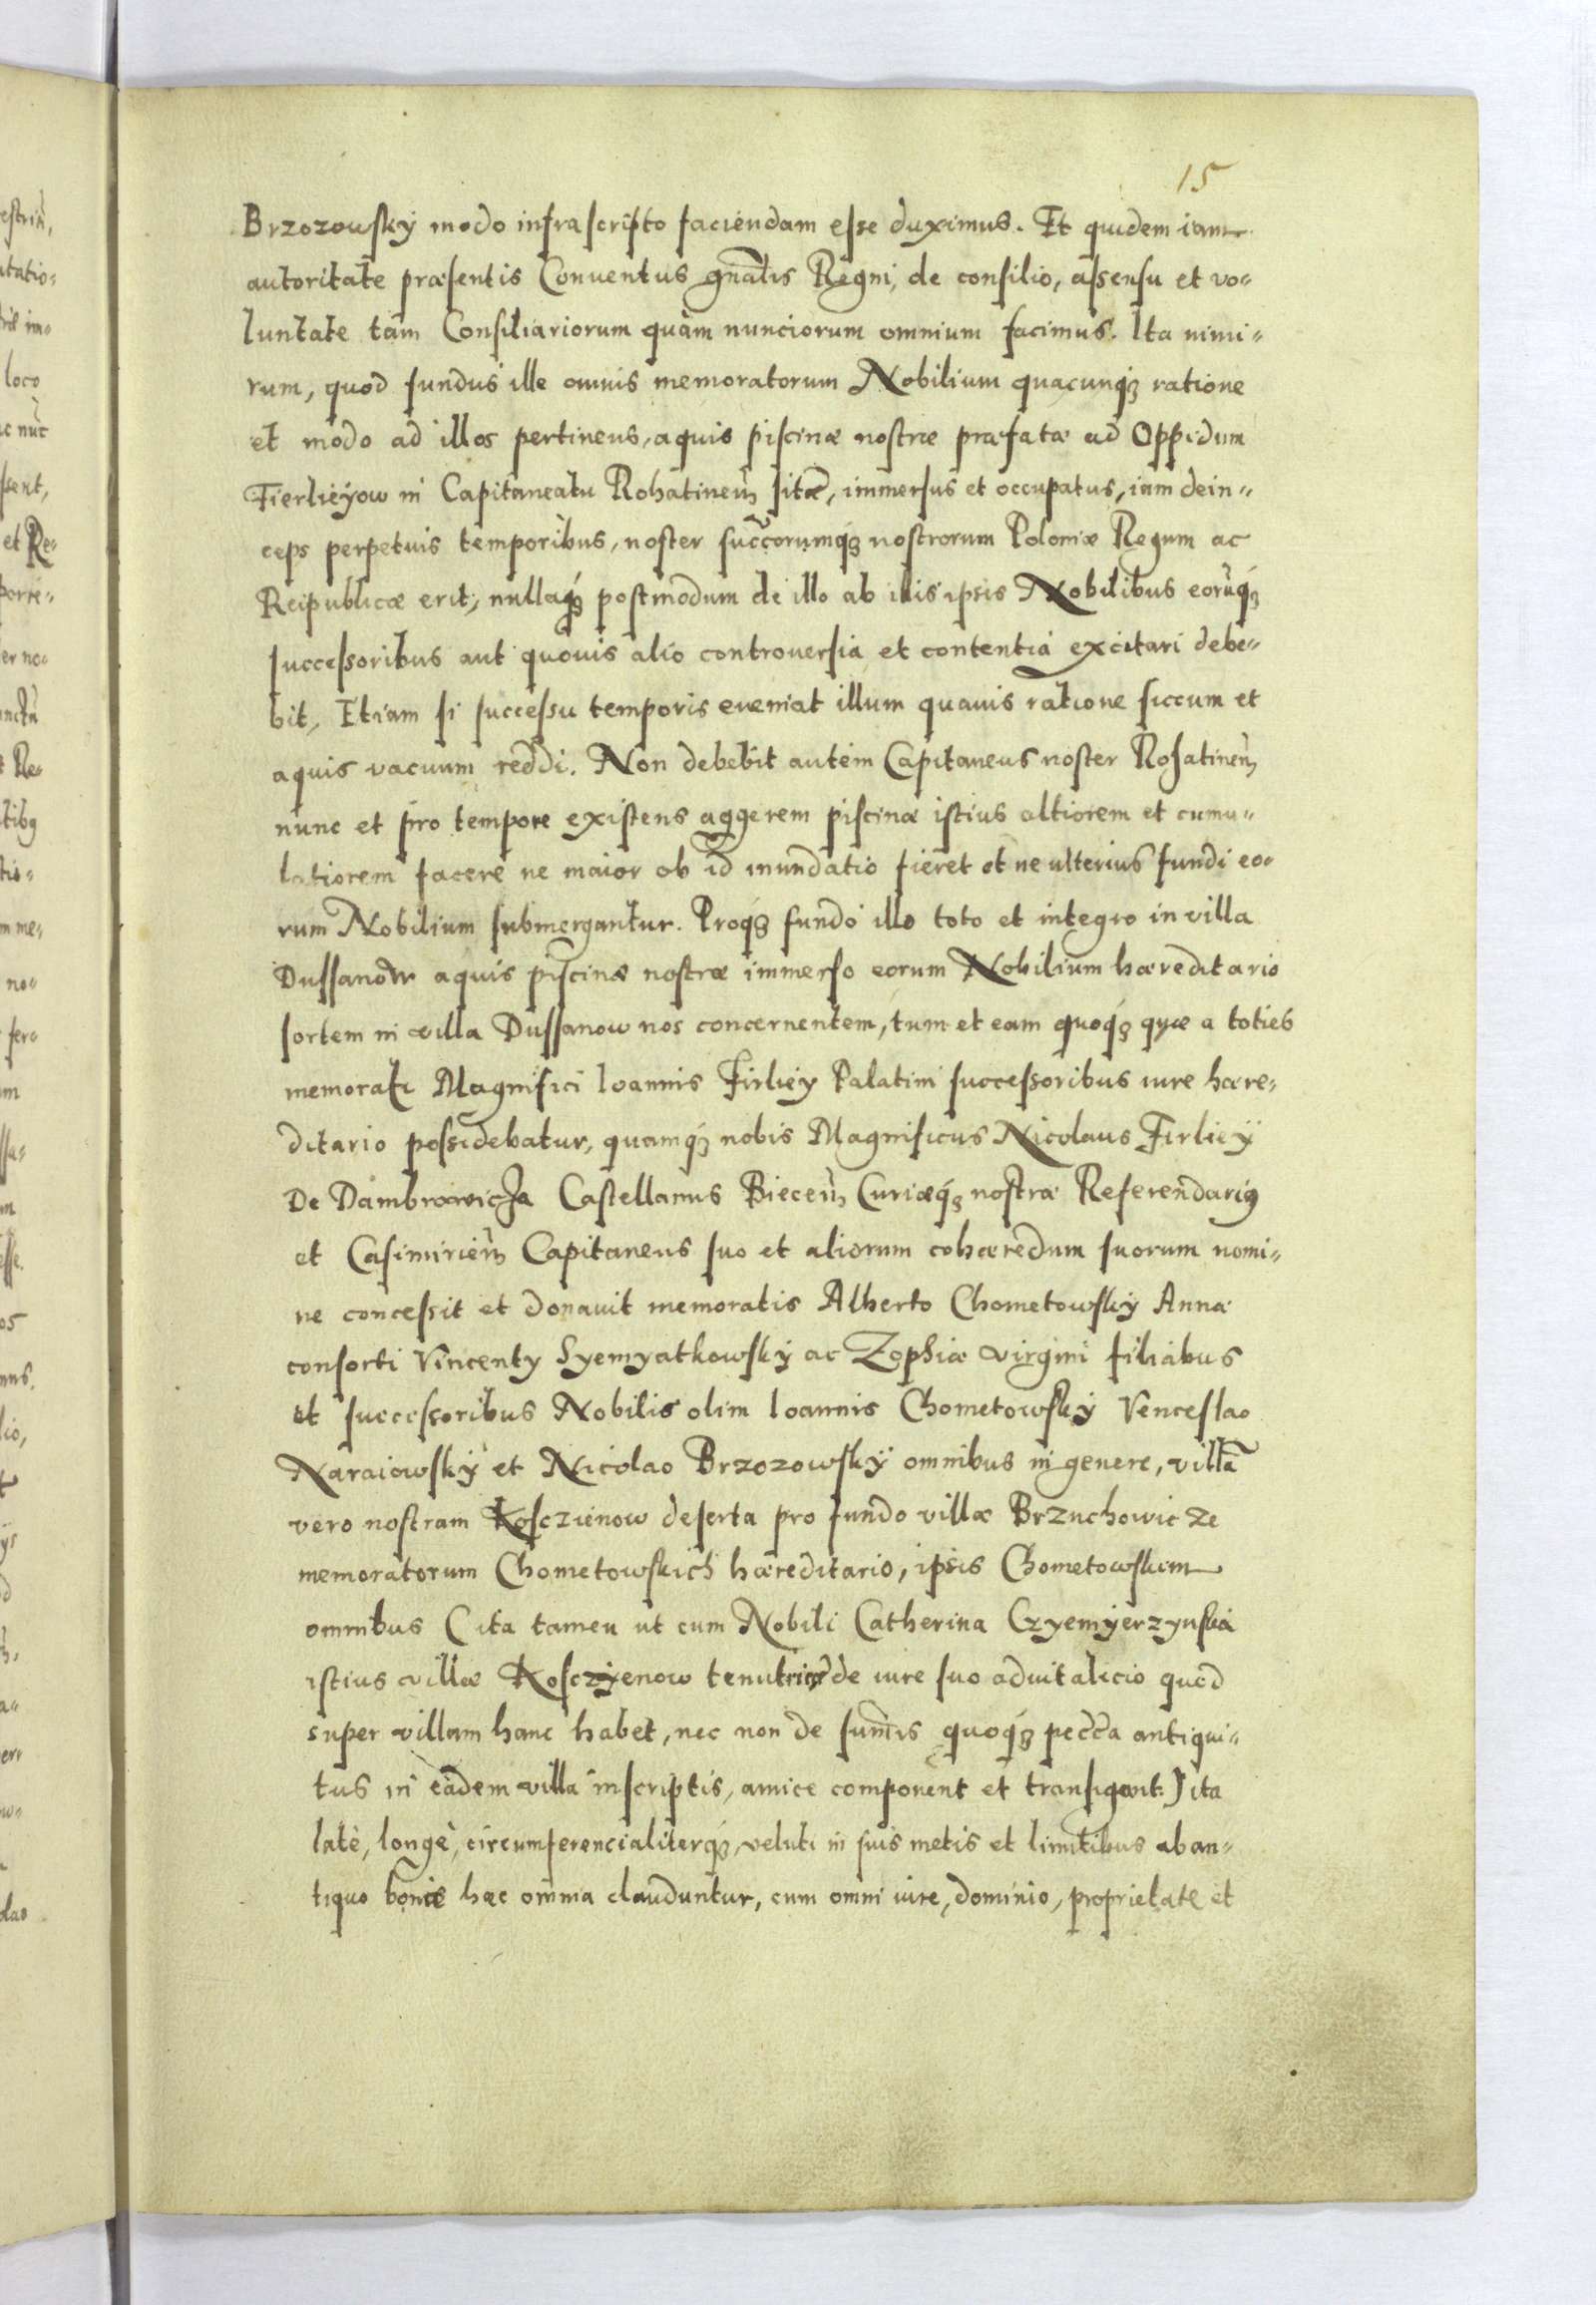 15
Brzozowsky modo infrascripto faciendam esse duximus. Et quidem iam
autoritate præsentis Conuentus gn̄alis Regni, de consilio, assensu et vo-
luntate tàm Consiliariorum quàm nunciorum omnium facimus. Ita nimi-
rum, quod fundus ille omnis memoratorum Nobilium quacunq́ꝫ ratione
et modo ad illos pertinens, aquis piscinæ nostræ præfatæ ad Oppidum
Fierlieyow in Capitaneatu Rohatineñ sitæ, immersus et occupatus, iam dein-
ceps perpetuis temporibus, noster succ̄orumq́ꝫ nostrorum Poloniæ Regum ac
Reipublicæ erit, nullaq́ꝫ postmodum de illo ab illis ipsis Nobilibus eorūq́ꝫ
successoribus aut quouis alio controuersia et contentia excitari debe-
bit, Etiam si successu temporis eueniat illum quauis ratione siccum et
aquis vacuum reddi. Non debebit autem Capitaneus noster Rohatineñ
nunc et pro tempore existens aggerem piscinæ istius altiorem et cumu-
latiorem facere ne maior ob id inundatio fieret et ne ulterius fundi eo-
rum Nobilium submergantur. Proq́ꝫ fundo illo toto et integro in villa
Dussanow aquis piscinæ nostræ immerso eorum Nobilium hæreditario
sortem in villa Dussanow nos concernentem, tum et eam quoq́ꝫ quæ a toties
memorati Magnifici Ioannis Firliey Palatini successoribus iure hære-
ditario possidebatur, quamq́ꝫ nobis Magnificus Nicolaus Firliey
De Dambrowicza Castellanus Bieceñ Curiæq́ꝫ nostræ Referendariꝰ
et Casimirieñ Capitaneus suo et aliorum cohæredum suorum nomi-
ne concessit et donauit memoratis Alberto Chometowsky Annæ
consorti Vincenty Syemyatkowsky ac Zophiæ virgini filiabus
et successoribus Nobilis olim Ioannis Chometowsky Venceslao
Naraiowsky et Nicolao Brzozowsky omnibus in genere, villā
vero nostram Kosczienow deserta pro fundo villæ Brzuchowicze
memoratorum Chometowskich hæreditario, ipsis Chometowskim
omnibus (ita tamen ut cum Nobili Catherina Czyemyerzynska
istius villæ Kosczyenow tenutrice de iure suo aduitalicio quod
super villam hanc habet, nec non de summis quoq́ꝫ pecc̄a antiqui-
tus in eadem villa inscriptis, amice component et transigant.) ita
latè, longè, circumferencialiterq́ꝫ, veluti in suis metis et limitibus ab an-
tiquo bonis hæc omnia clauduntur, cum omni iure, dominio, proprietate et